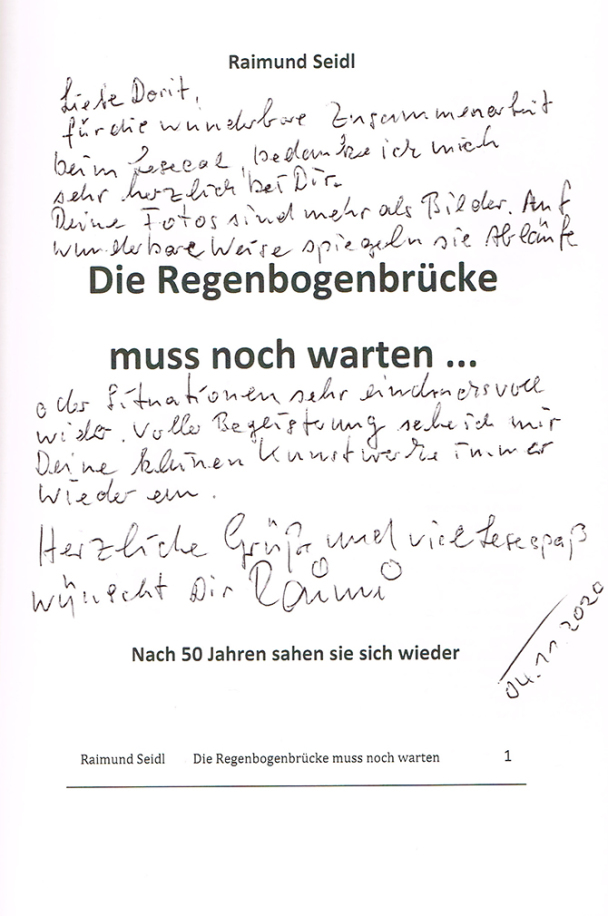 Raimund Seidl
Liebe Dorit,
für die wunderbare Zusammenarbeit
beim Lesecal, bedanke ich mich
sehr herzlich bei Dir.
Deine Fotos sind mehr als Bilder. Auf
wunderbare Weise spiegeln sie Abläufe
Die Regenbogenbrücke
muss noch warten ...
oder Situationen sehr eindrucksvoll
wider. Voller Begeisterung sehe ich mir
Deine kleinen Kunstwerke immer
wieder ein.
Herzliche Grüße und viel Lesespaß
wünscht Dir Raimund
04.11.2020
Nach 50 Jahren sahen sie sich wieder
Raimund Seidl Die Regenbogenbrücke muss noch warten 1